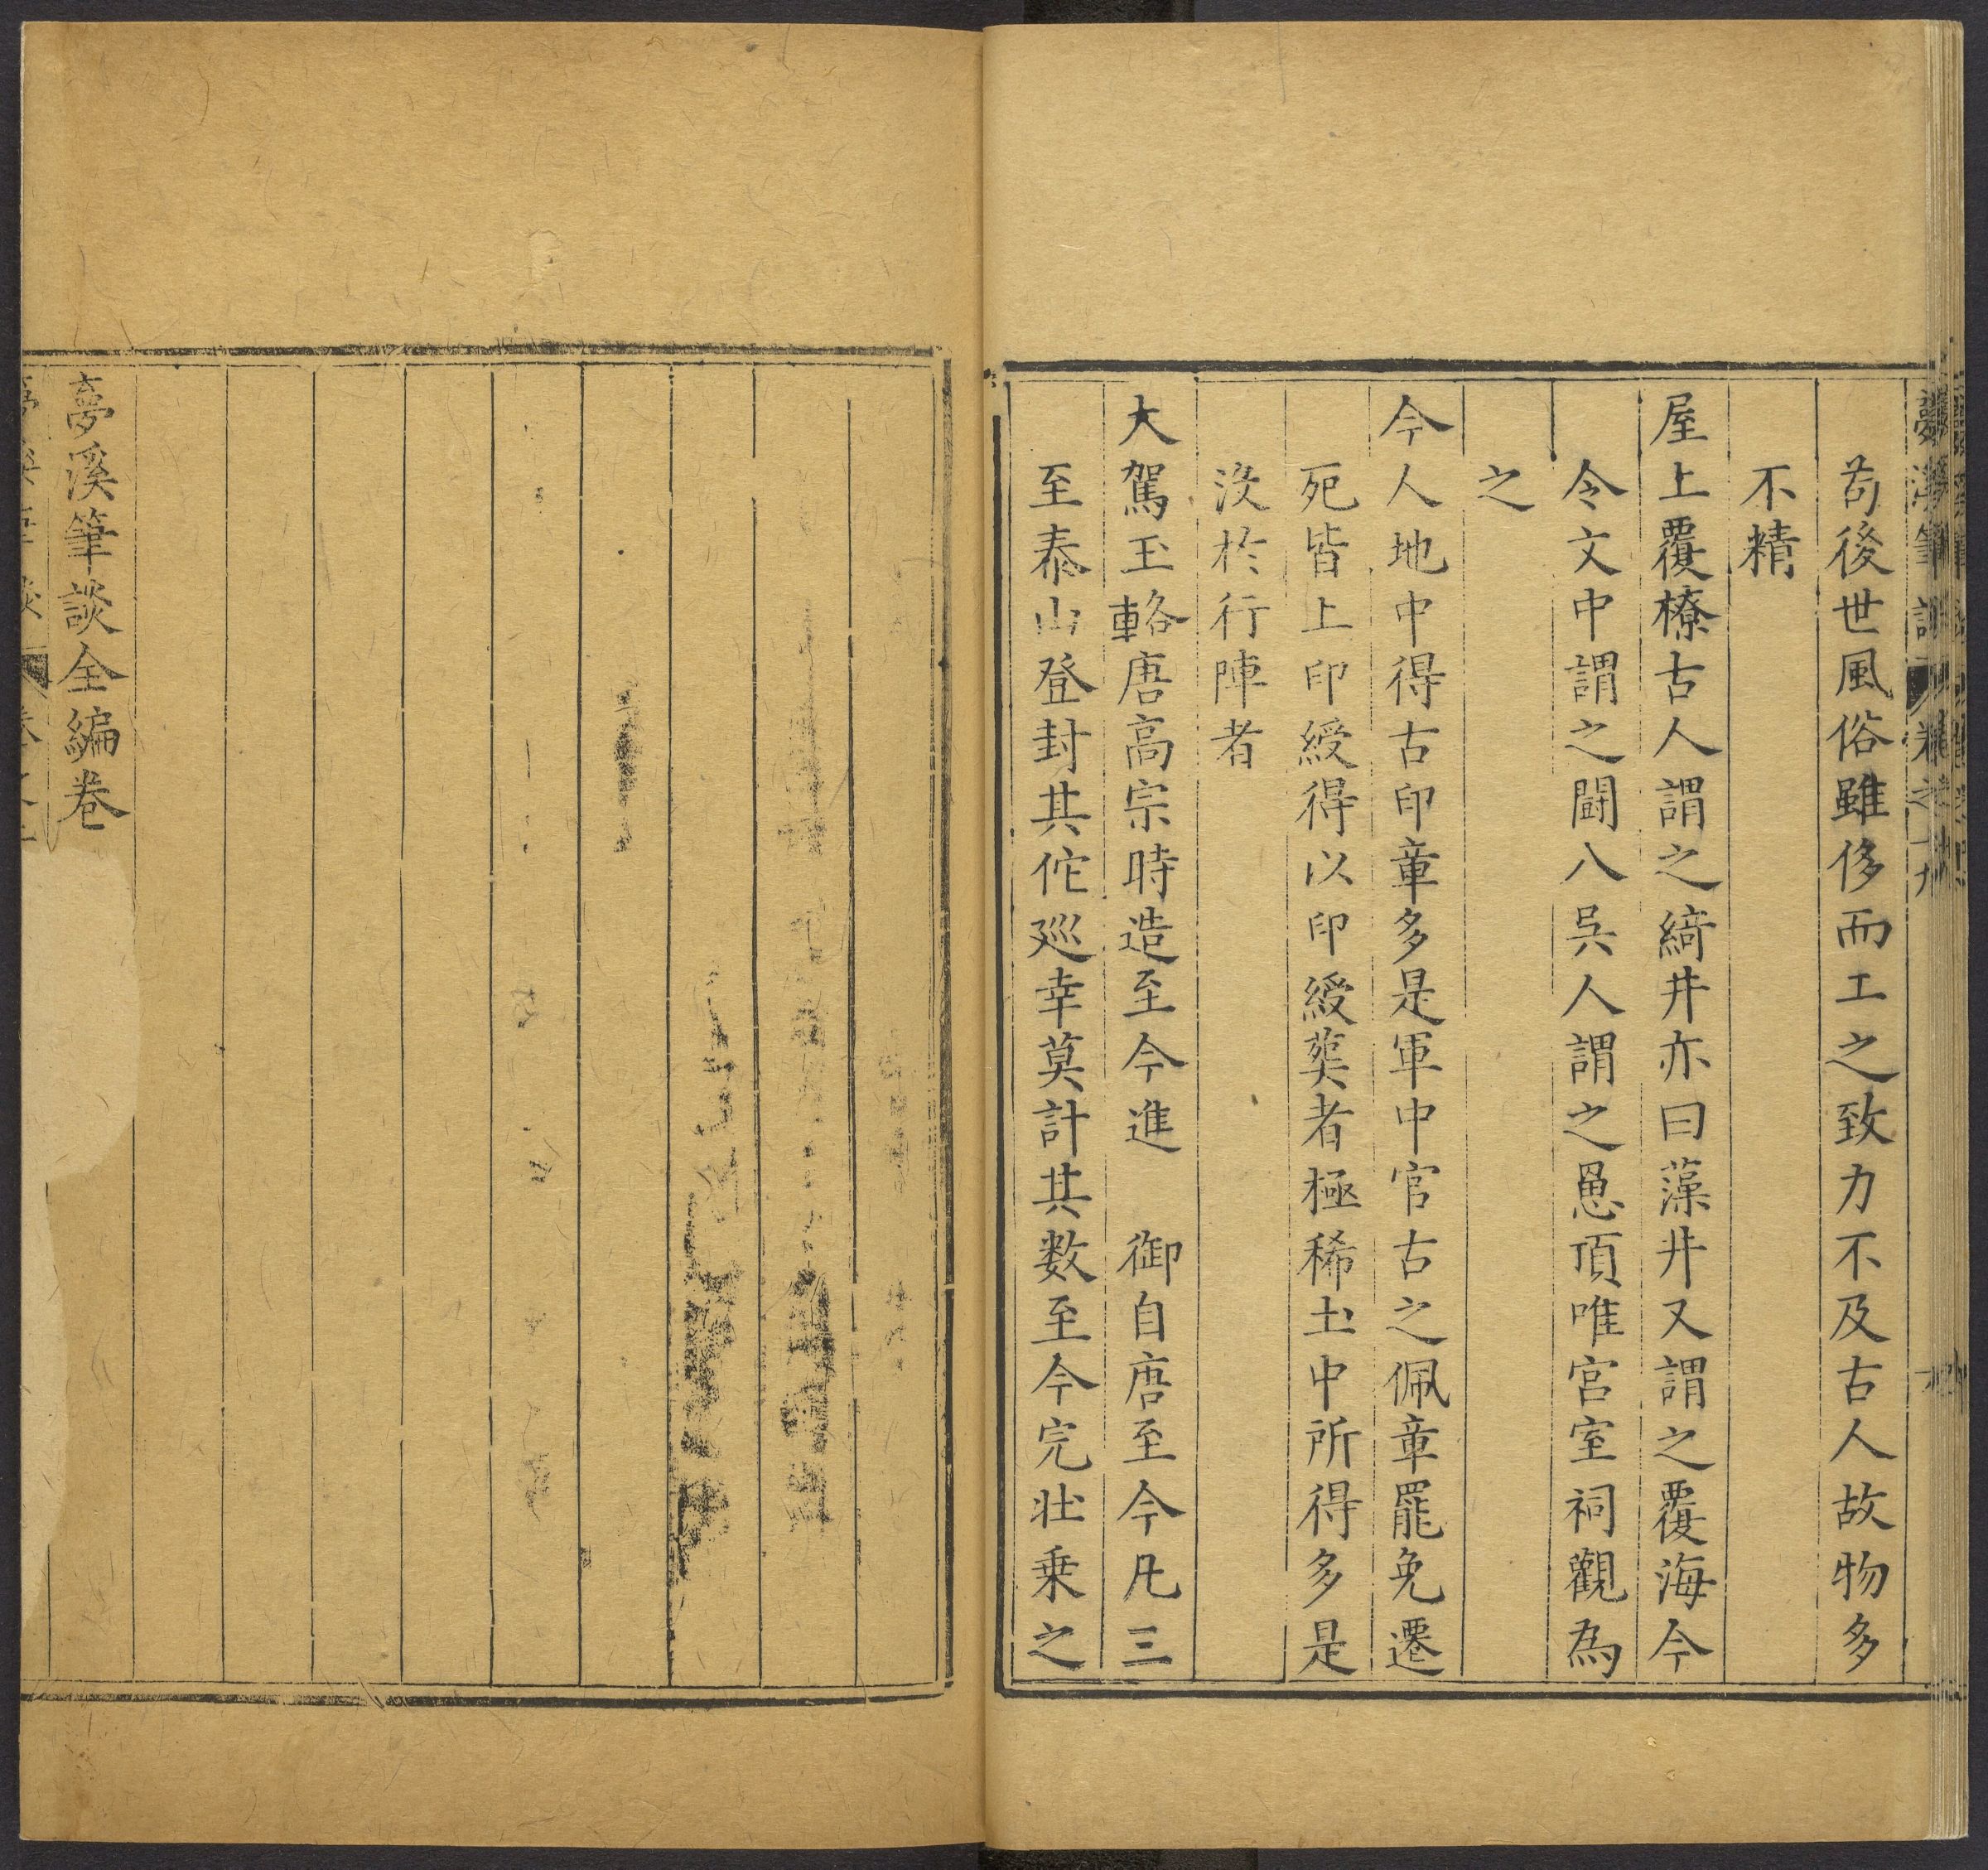 苟後世風俗雖侈而工之致力不及古人故物多
不精
屋上覆橑古人謂之綺井亦曰藻井又謂之覆海今
令文中謂之鬬八吳人謂之罳頂唯宮室祠觀為
之
今人地中得古印章多是軍中官古之佩章罷免遷
死皆上印綬得以印綬葬者極稀土中所得多是
沒於行陣者
大駕玉輅唐高宗時造至今進　御自唐至今凡三
至泰山登封其佗廵幸莫計其数至今完壯乗之
夢溪筆談全編卷